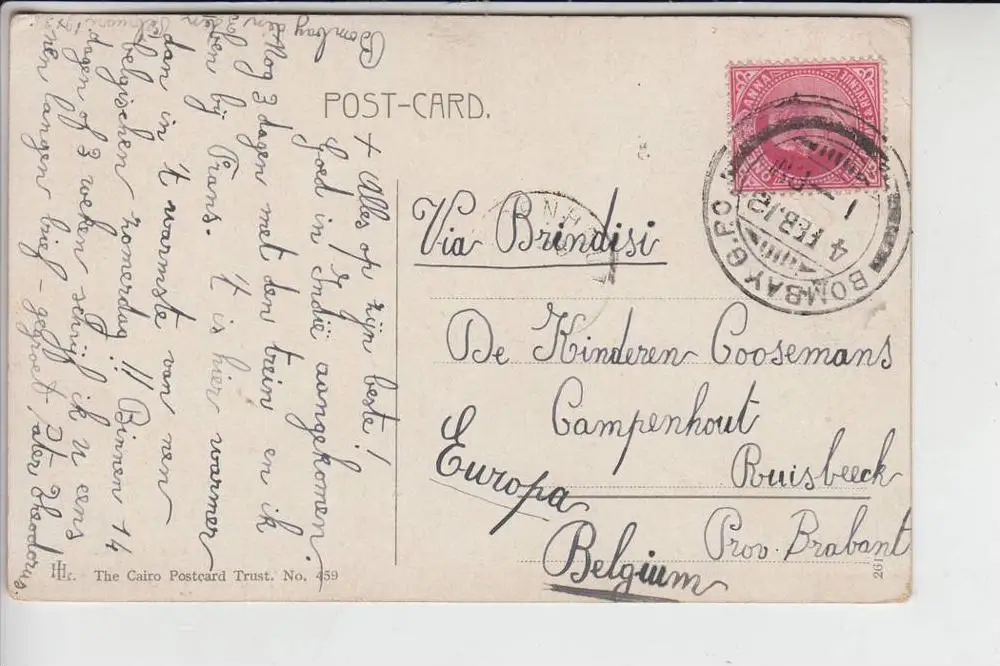 POST-CARD.
Bombay
den
+ Alles op zijn beste!
Goed in Indië aangekomen
Nog 3 dagen met den trein en ik
ben bij Frans. 't is hier warmer
dan in 't warmste van nen
belgischen zomerdag!! Binnen 14
dagen of 3 weken schrijf ik u eens
nen langen brief - gegroet, Theodorus.
Via Brindisi
De Kinderen Coosemans
Campenhout
Ruisbeeck
Prov. Brabant
Europa
Belgium
BOMBAY G.P.O
4 FEB.12
ANNA
The Cairo Postcard Trust. No. 459
261